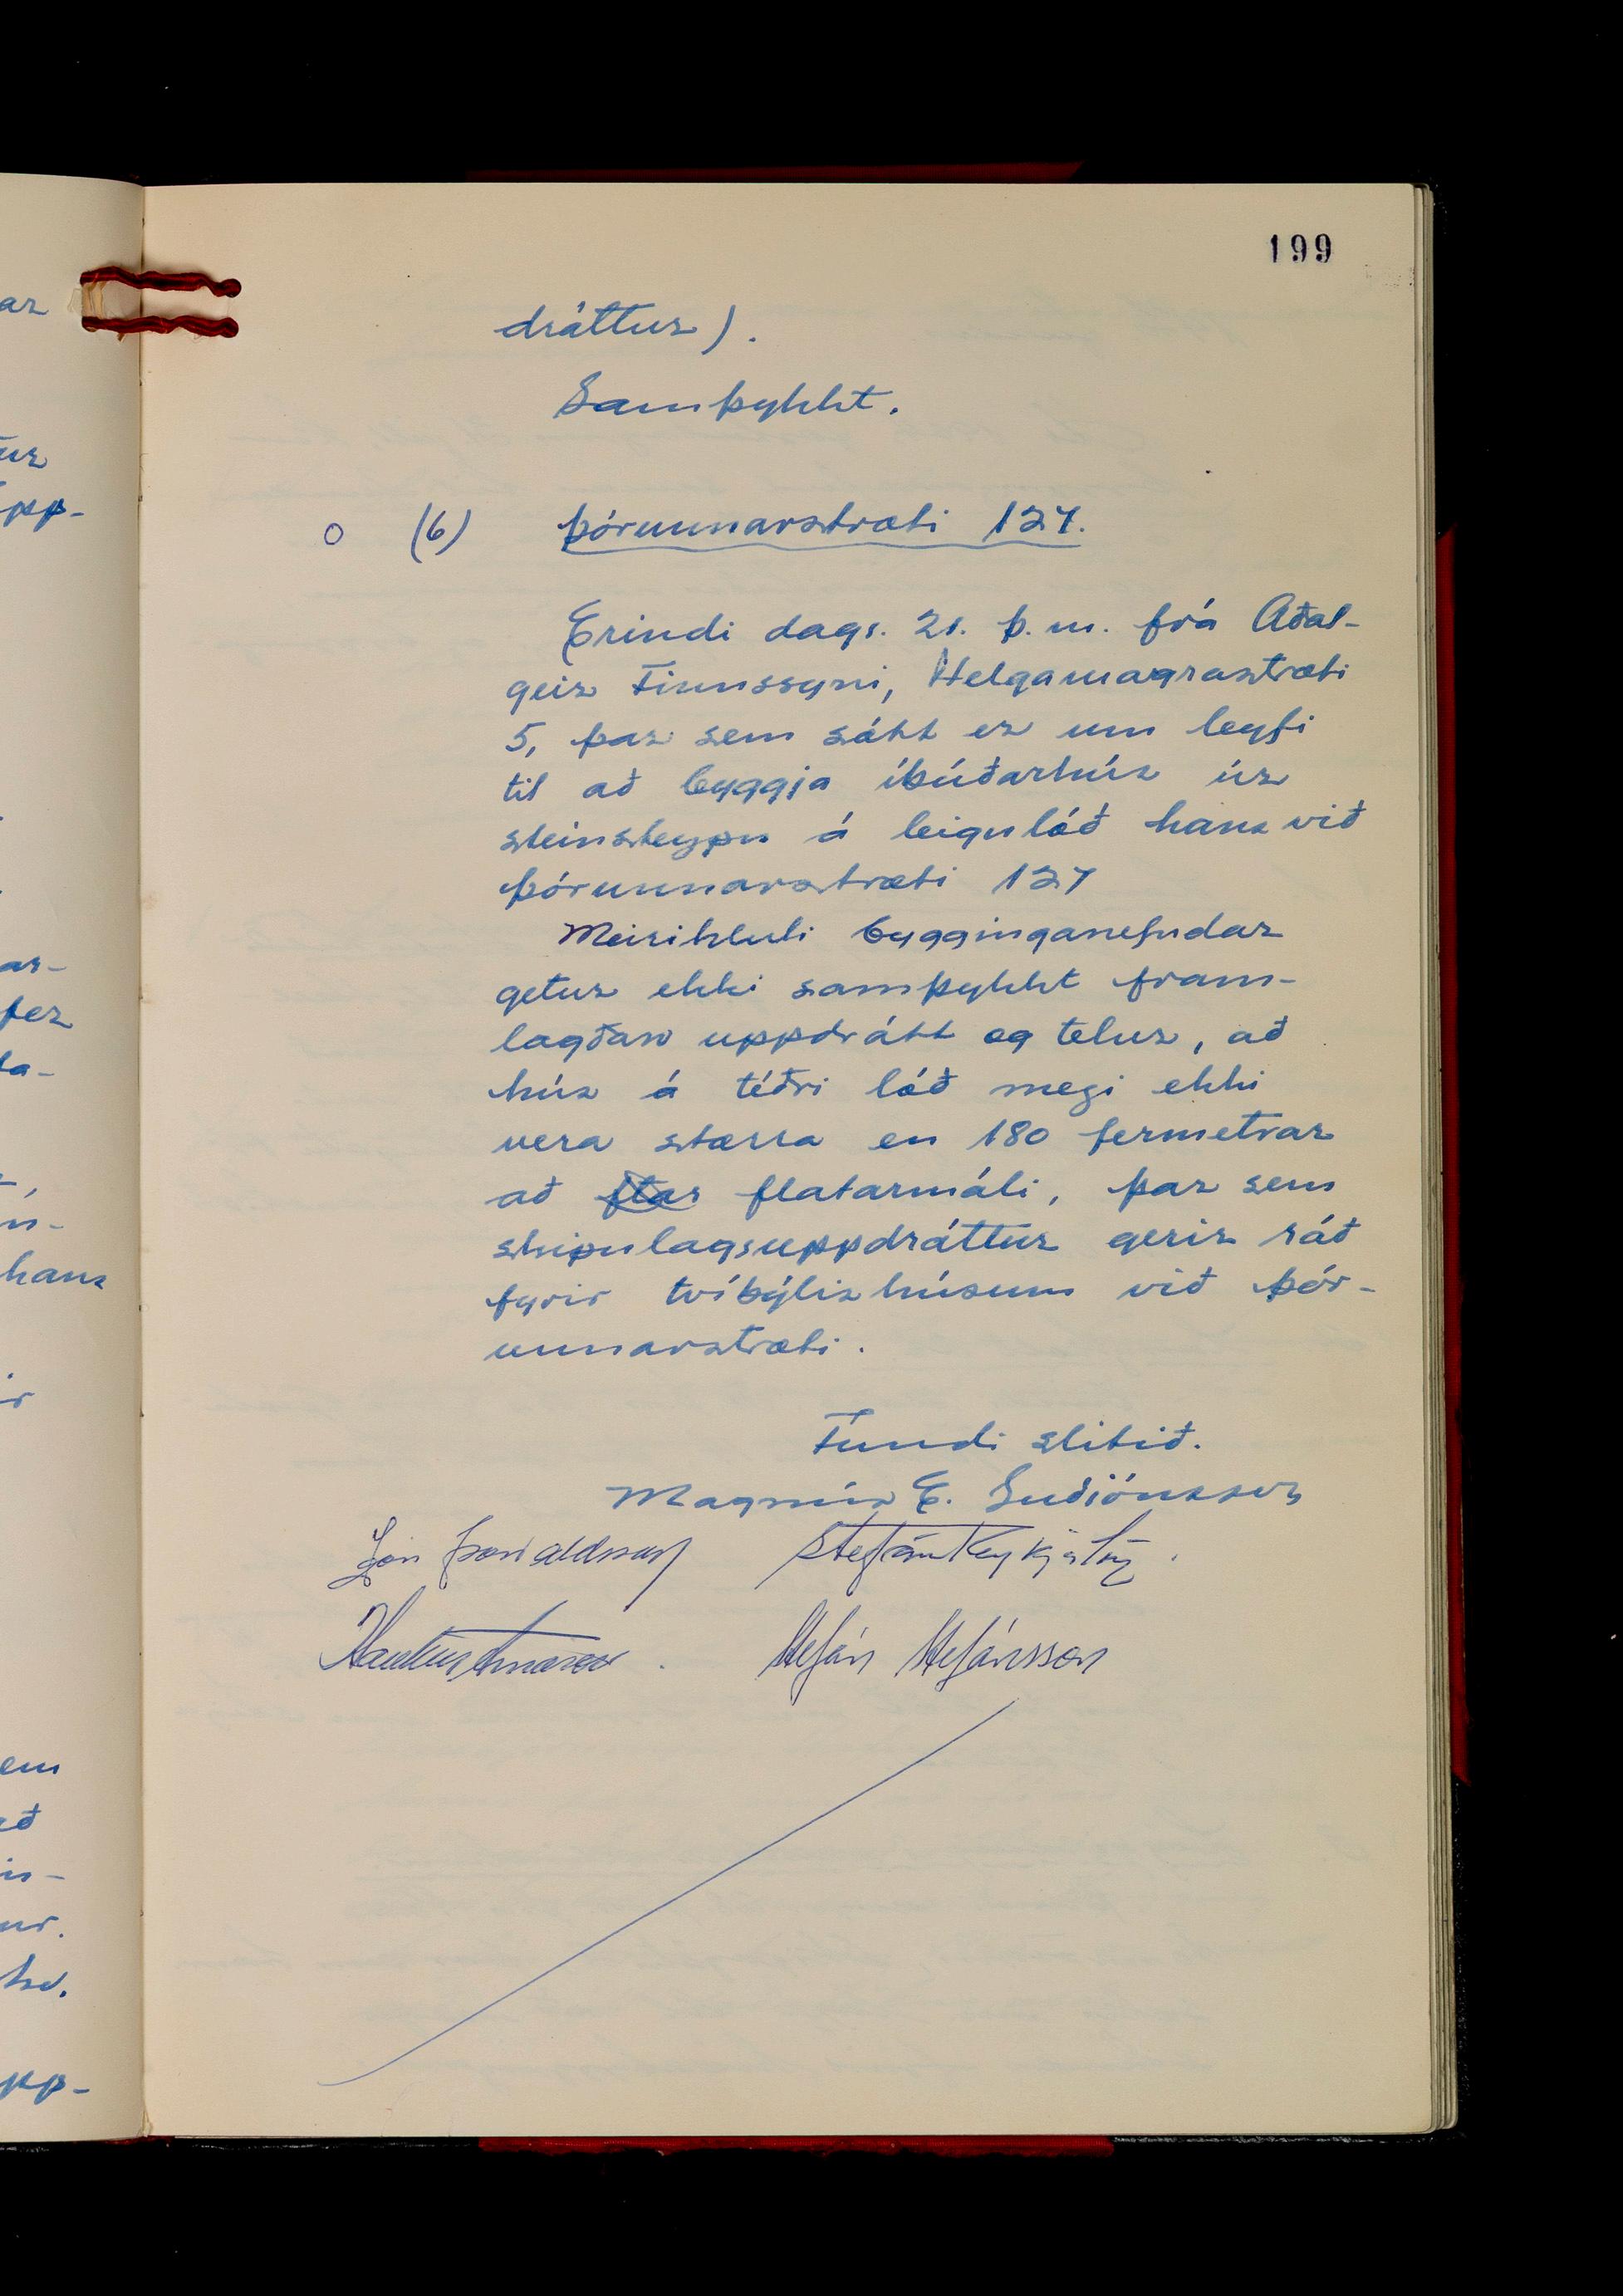 199
dráttur).
Samþykkt.
o (6) Þórunnarstræti 127.
Erindi dags. 21. þ.m. frá Aðal-
geir Finnssyni, Helgamagrastræti
5, þar sem sótt er um leyfi
til að byggja íbúðarhús úr
steinsteypu á leigulóð hans við
Þórunnarstræti 127
Meirihluti bygginganefndar
getur ekki samþykkt fram-
lagðan uppdrátt og telur, að
hús á téðri lóð megi ekki
vera stærra en 180 fermetrar
að flatarmáli, þar sem
skipulagsuppdráttur gerir ráð
fyrir tvíbýlishúsum við Þór-
unnarstræti.
Fundi slitið.
Magnús E. Guðjónsson
Jón Þorvaldsson Stefán Reykjalín.
Haukur Árnason. Stefán Stefánsson